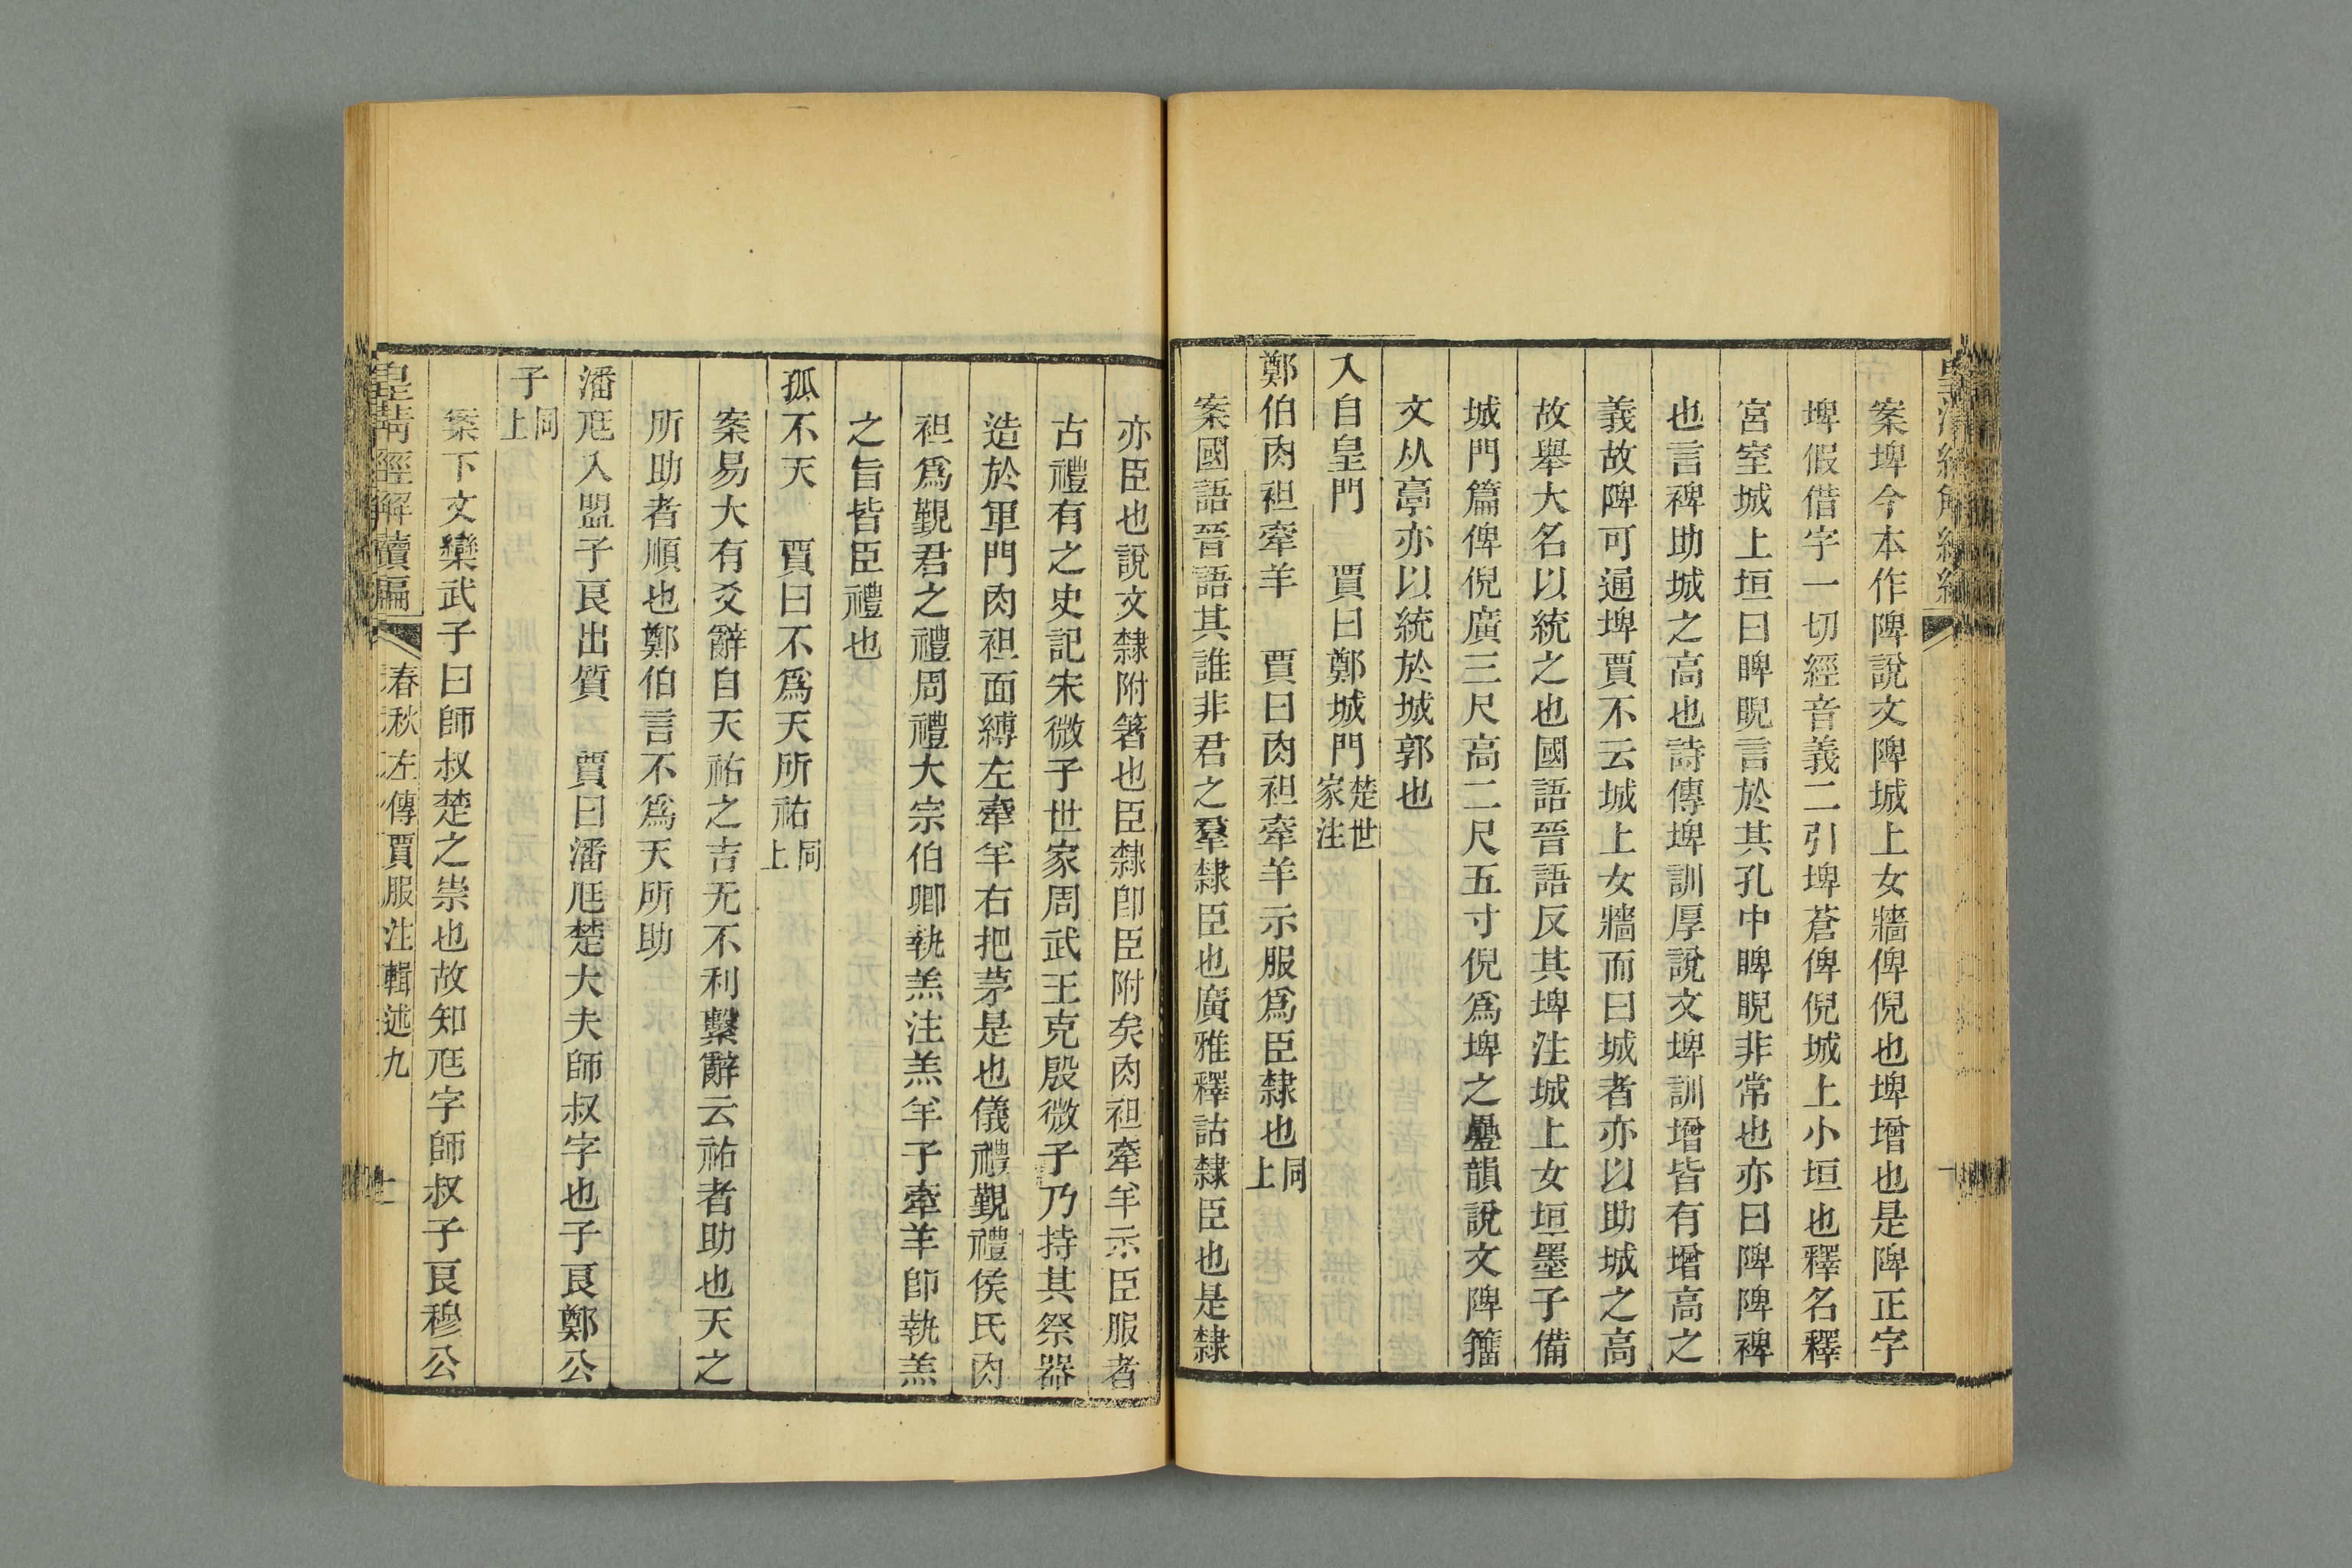 案埤今本作陴說文陴城上女牆俾倪也埤增也是陴正字
埤假借字一切經音義二引埤蒼俾倪城上小垣也釋名釋
宮室城上垣曰睥睨言於其孔中睥睨非常也亦曰陴陴裨
也言裨助城之高也詩傳埤訓厚說文埤訓增皆有增高之
義故陴可通埤賈不云城上女牆而曰城者亦以助城之高
故舉大名以統之也國語晉語反其埤注城上女垣墨子備
城門篇俾倪廣三尺高二尺五寸倪爲埤之疊韻說文陴籀
文从𩫏亦以統於城郭也
入自皇門　賈曰鄭城門楚世家注
鄭伯肉袒牽羊　賈曰肉袒牽羊示服爲臣隸也同上
案國語晉語其誰非君之羣隸臣也廣雅釋詁隸臣也是隸
亦臣也說文隸附箸也臣隸卽臣附矣肉袒牽羊示臣服者
古禮有之史記宋微子世家周武王克殷微子乃持其祭器
造於軍門肉袒面縛左牽羊右把茅是也儀禮覲禮侯氏肉
袒爲覲君之禮周禮大宗伯卿執羔注羔羊子牽羊卽執羔
之旨皆臣禮也
孤不天　賈曰不爲天所祐同上
案易大有爻辭自天祐之吉无不利繫辭云祐者助也天之
所助者順也鄭伯言不爲天所助
潘尫入盟子良出質　賈曰潘尫楚大夫師叔字也子良鄭公
子同上
案下文欒武子曰師叔楚之崇也故知尫字師叔子良穆公
皇清經解續編
春秋左傳賈服注輯述九